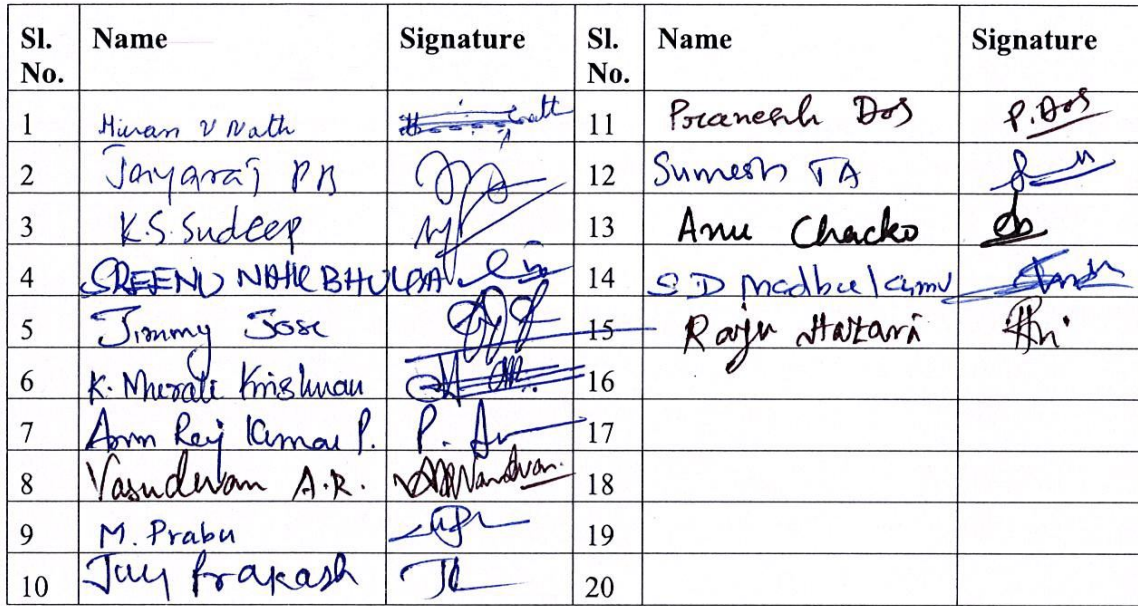 Sl. No. Name Signature Sl. No. Name Signature
1 Hiran V Nath 11 Pranesh Das P. Das
2 Jayaraj PB 12 Sumesh TA
3 K.S. Sudeep 13 Anu Chacko
4 SREENU NAIK BHUKYA 14 S D Madhu Kumar
5 Jimmy Jose 15 Raju Hazari
6 K. Murali Krishnan 16
7 Arun Raj Kumar P. 17
8 Vasudevan A.R. 18
9 M. Prabu 19
10 Jay Prakash 20